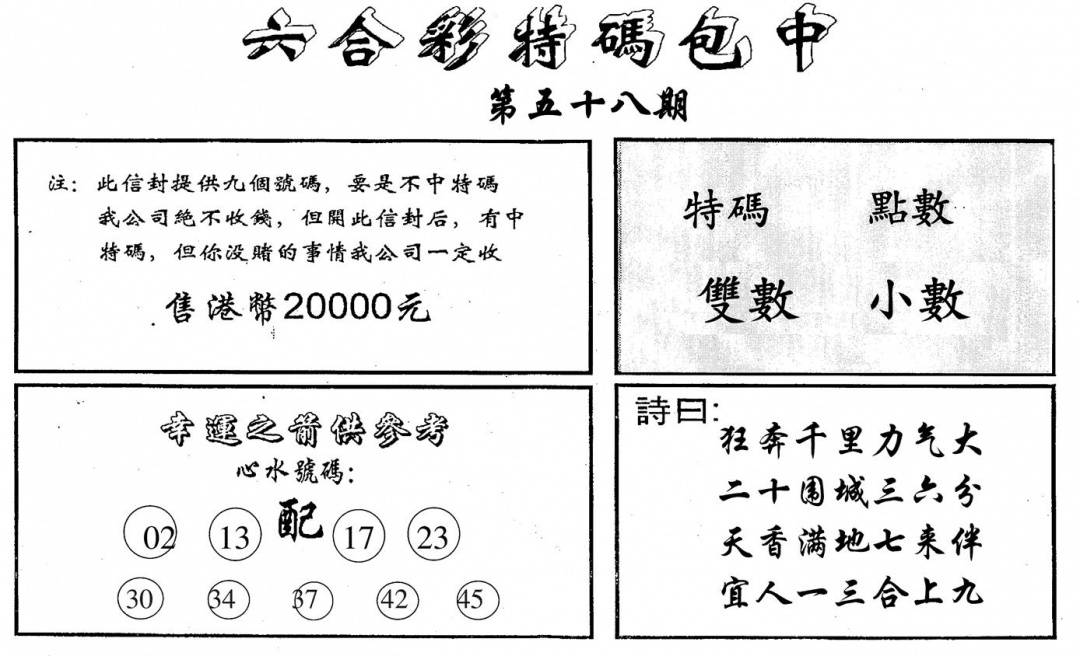 六合彩特碼包中
第五十八期
注：此信封提供九個號碼，要是不中特碼
我公司絕不收錢，但開此信封后，有中
特碼，但你没賭的事情我公司一定收
售港幣20000元
特碼 點數
雙數 小數
幸運之箭供參考
心水號碼：
02 13 配 17 23
30 34 37 42 45
詩曰：
狂奔千里力气大
二十围城三六分
天香满地七来伴
宜人一三合上九